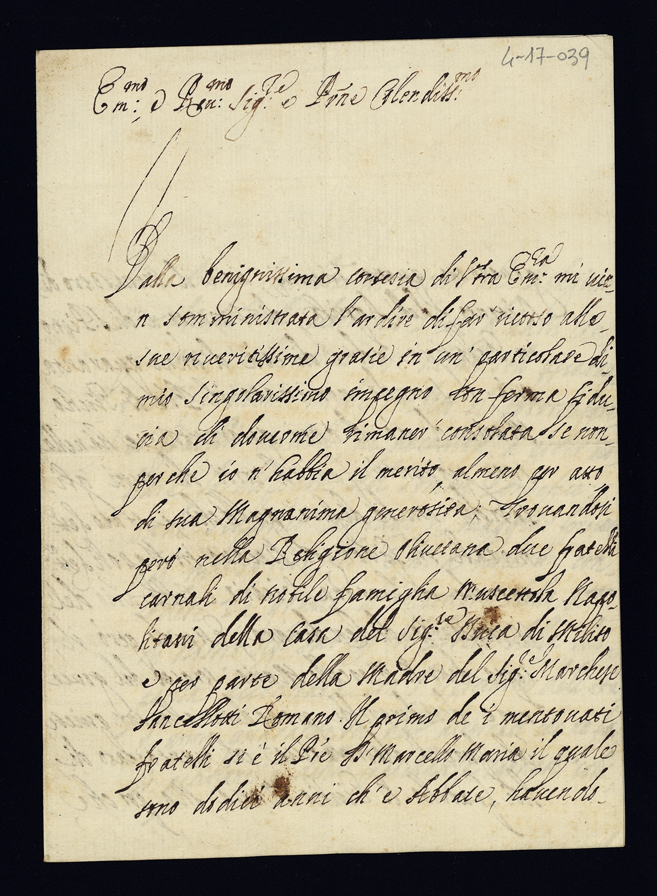 4-17-039
Em:mo e Reu:mo Sig:re e Pñe Colendiss:mo
Dalla benignissima cortesia di Vtra Em:za mi vie-
n somministrata l'ardire di far ricorso alle
sue riveritissime gratie in un' particolare di
mio singolarissimo impegno con ferma fidu-
cia di douerne rimaner' consolata se non
perche io n'habbia il merito, almeno per atto
di sua Magnanima generosità; Trouandosi
però nella Religione Oliuetana due fratelli
carnali di nobile famiglia Muscettola Napo-
litani della Casa del Sig:re Duca di Melito
e per parte della Madre del Sig:re Marchese
Lancellotti Romano. Il primo de i mentouati
fratelli si è il Pre D. Marcello Maria il quale
sono dodici anni ch'è Abbate, hauendo-